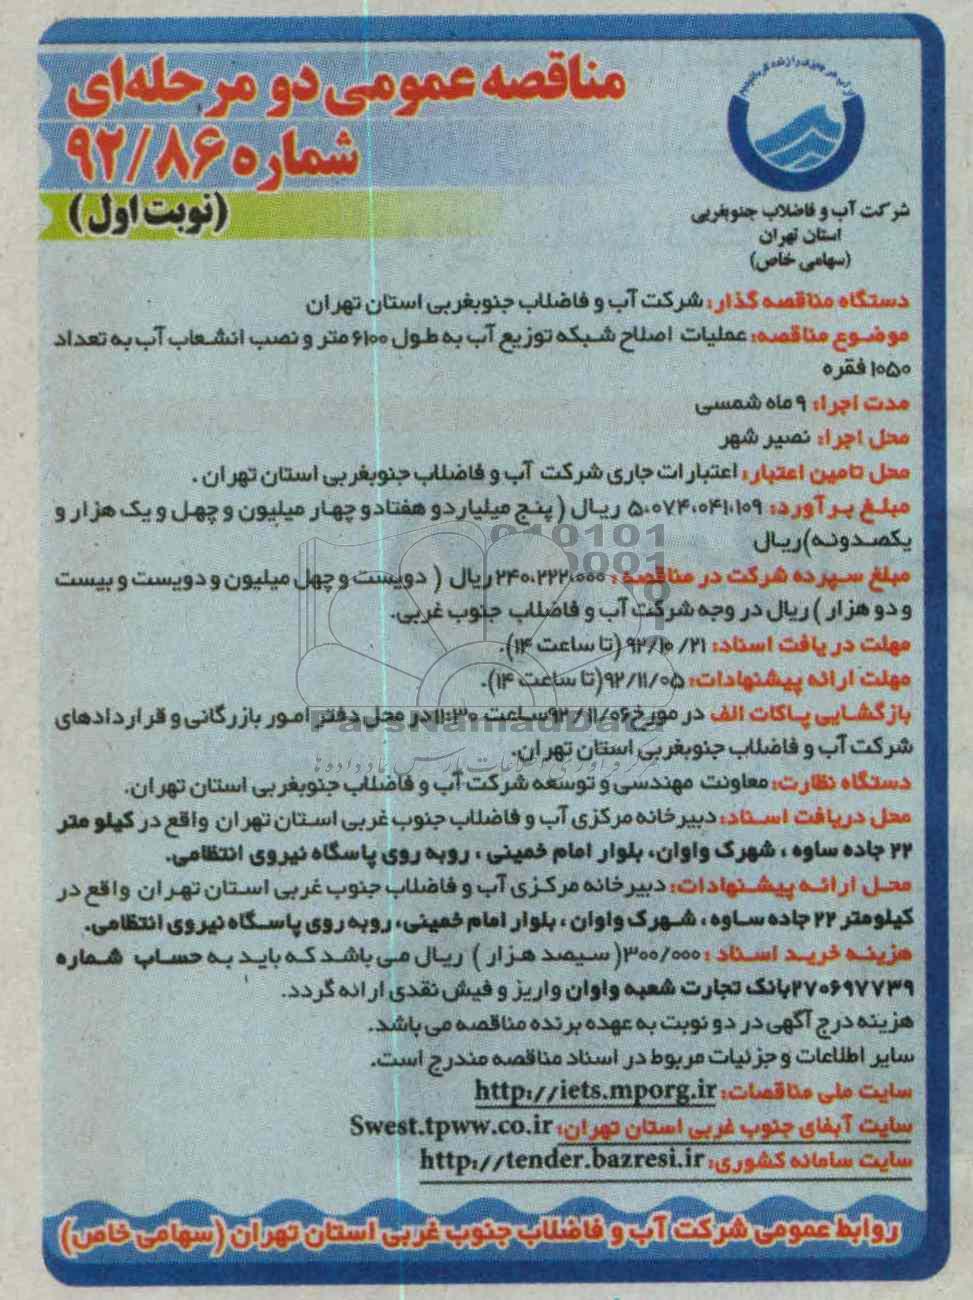 مناقصه عمومی دو مرحله‌ای
شماره ۹۲/۸۶
(نوبت اول)
شرکت آب و فاضلاب جنوبغربی
استان تهران
(سهامی خاص)
دستگاه مناقصه گذار: شرکت آب و فاضلاب جنوبغربی استان تهران
موضوع مناقصه: عملیات اصلاح شبکه توزیع آب به طول ۶۱۰۰ متر و نصب انشعاب آب به تعداد
۱۰۵۰ فقره
مدت اجرا: ۹ ماه شمسی
محل اجرا: نصیر شهر
محل تامین اعتبار: اعتبارات جاری شرکت آب و فاضلاب جنوبغربی استان تهران .
مبلغ برآورد: ۵،۰۷۴،۰۴۱،۱۰۹ ریال ( پنج میلیارد و هفتاد و چهار میلیون و چهل و یک هزار و
یکصدونه)ریال
مبلغ سپرده شرکت در مناقصه: ۲۴۰،۲۲۲،۰۰۰ ریال ( دویست و چهل میلیون و دویست و بیست
و دو هزار ) ریال در وجه شرکت آب و فاضلاب جنوب غربی.
مهلت دریافت اسناد: ۹۲/۱۰/۲۱ (تا ساعت ۱۴).
مهلت ارائه پیشنهادات: ۹۲/۱۱/۰۵(تا ساعت ۱۴).
بازگشایی پاکات الف در مورخ ۹۲/۱۱/۰۶ساعت ۱۱:۳۰ در محل دفتر امور بازرگانی و قراردادهای
شرکت آب و فاضلاب جنوبغربی استان تهران.
دستگاه نظارت: معاونت مهندسی و توسعه شرکت آب و فاضلاب جنوبغربی استان تهران.
محل دریافت اسناد: دبیرخانه مرکزی آب و فاضلاب جنوب غربی استان تهران واقع در کیلو متر
۲۲ جاده ساوه ، شهرک واوان، بلوار امام خمینی ، روبه روی پاسگاه نیروی انتظامی.
محل ارائه پیشنهادات: دبیرخانه مرکزی آب و فاضلاب جنوب غربی استان تهران واقع در
کیلومتر ۲۲ جاده ساوه ، شهرک واوان ، بلوار امام خمینی، روبه روی پاسگاه نیروی انتظامی.
هزینه خرید اسناد : ۳۰۰/۰۰۰( سیصد هزار ) ریال می باشد که باید به حساب شماره
۲۷۰۶۹۷۷۳۹بانک تجارت شعبه واوان واریز و فیش نقدی ارائه گردد.
هزینه درج آگهی در دو نوبت به عهده برنده مناقصه می باشد.
سایر اطلاعات و جزئیات مربوط در اسناد مناقصه مندرج است.
سایت ملی مناقصات: http://iets.mporg.ir
سایت آبفای جنوب غربی استان تهران: Swest.tpww.co.ir
سایت سامانه کشوری: http://tender.bazresi.ir
روابط عمومی شرکت آب و فاضلاب جنوب غربی استان تهران (سهامی خاص)
ParsNamadData